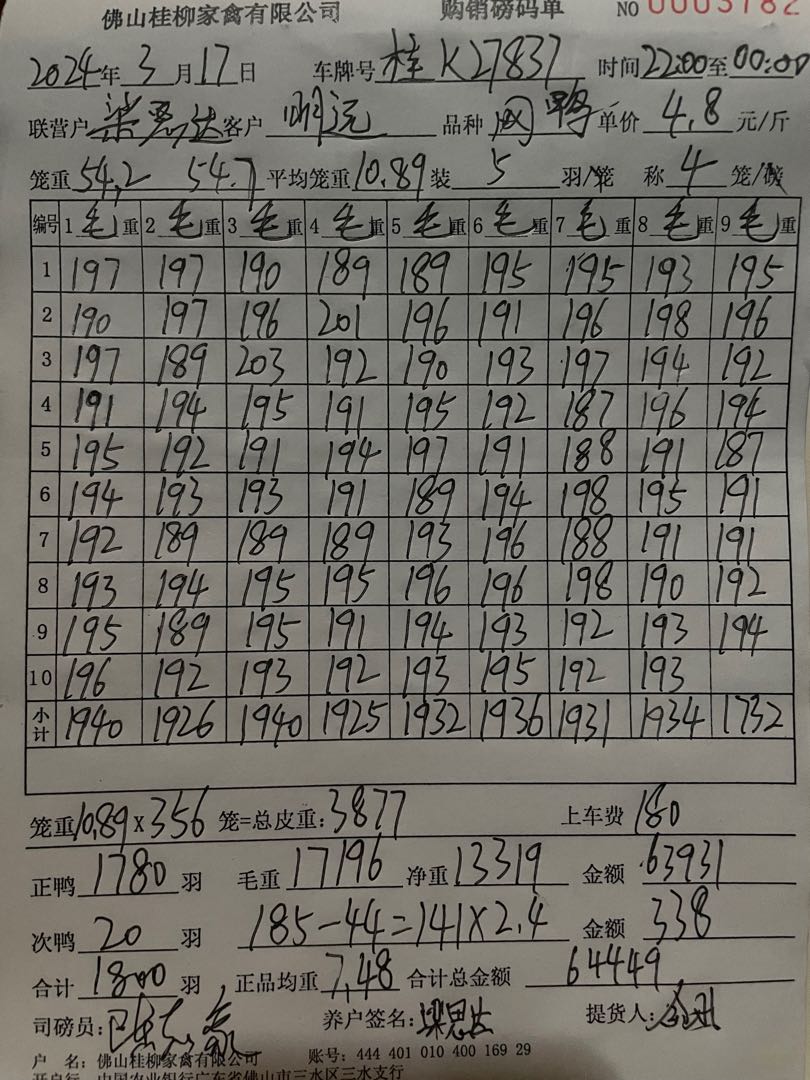 佛山桂柳家禽有限公司 购销磅码单 NO 0003782
2024年3月17日 车牌号 桂K27837 时间22:00至00:00
联营户 梁恩达 客户 明远 品种 网鸭 单价 4.8 元/斤
笼重54.2 54.7 平均笼重10.89装 5 羽/笼 称 4 笼/磅
编号 1毛重 2毛重 3毛重 4毛重 5毛重 6毛重 7毛重 8毛重 9毛重
1 197 197 190 189 189 195 195 193 195
2 190 197 196 201 196 191 196 198 196
3 197 189 203 192 190 193 197 194 192
4 191 194 195 191 195 192 187 196 194
5 195 192 191 194 197 191 188 191 187
6 194 193 193 191 189 194 198 195 191
7 192 189 189 189 193 196 188 191 191
8 193 194 195 195 196 196 198 190 192
9 195 189 195 191 194 193 192 193 194
10 196 192 193 192 193 195 192 193
小计 1940 1926 1940 1925 1932 1936 1931 1934 1732
笼重10.89×356 笼=总皮重:3877 上车费 180
正鸭 1780 羽 毛重 17196 净重 13319 金额 63931
次鸭 20 羽 185-44=141×2.4 金额 338
合计 1800 羽 正品均重 7.48 合计总金额 64449
司磅员: 养户签名:梁恩达 提货人:
户 名:佛山桂柳家禽有限公司 账号:444 401 010 400 169 29
开户行:中国农业银行广东省佛山市三水区三水支行